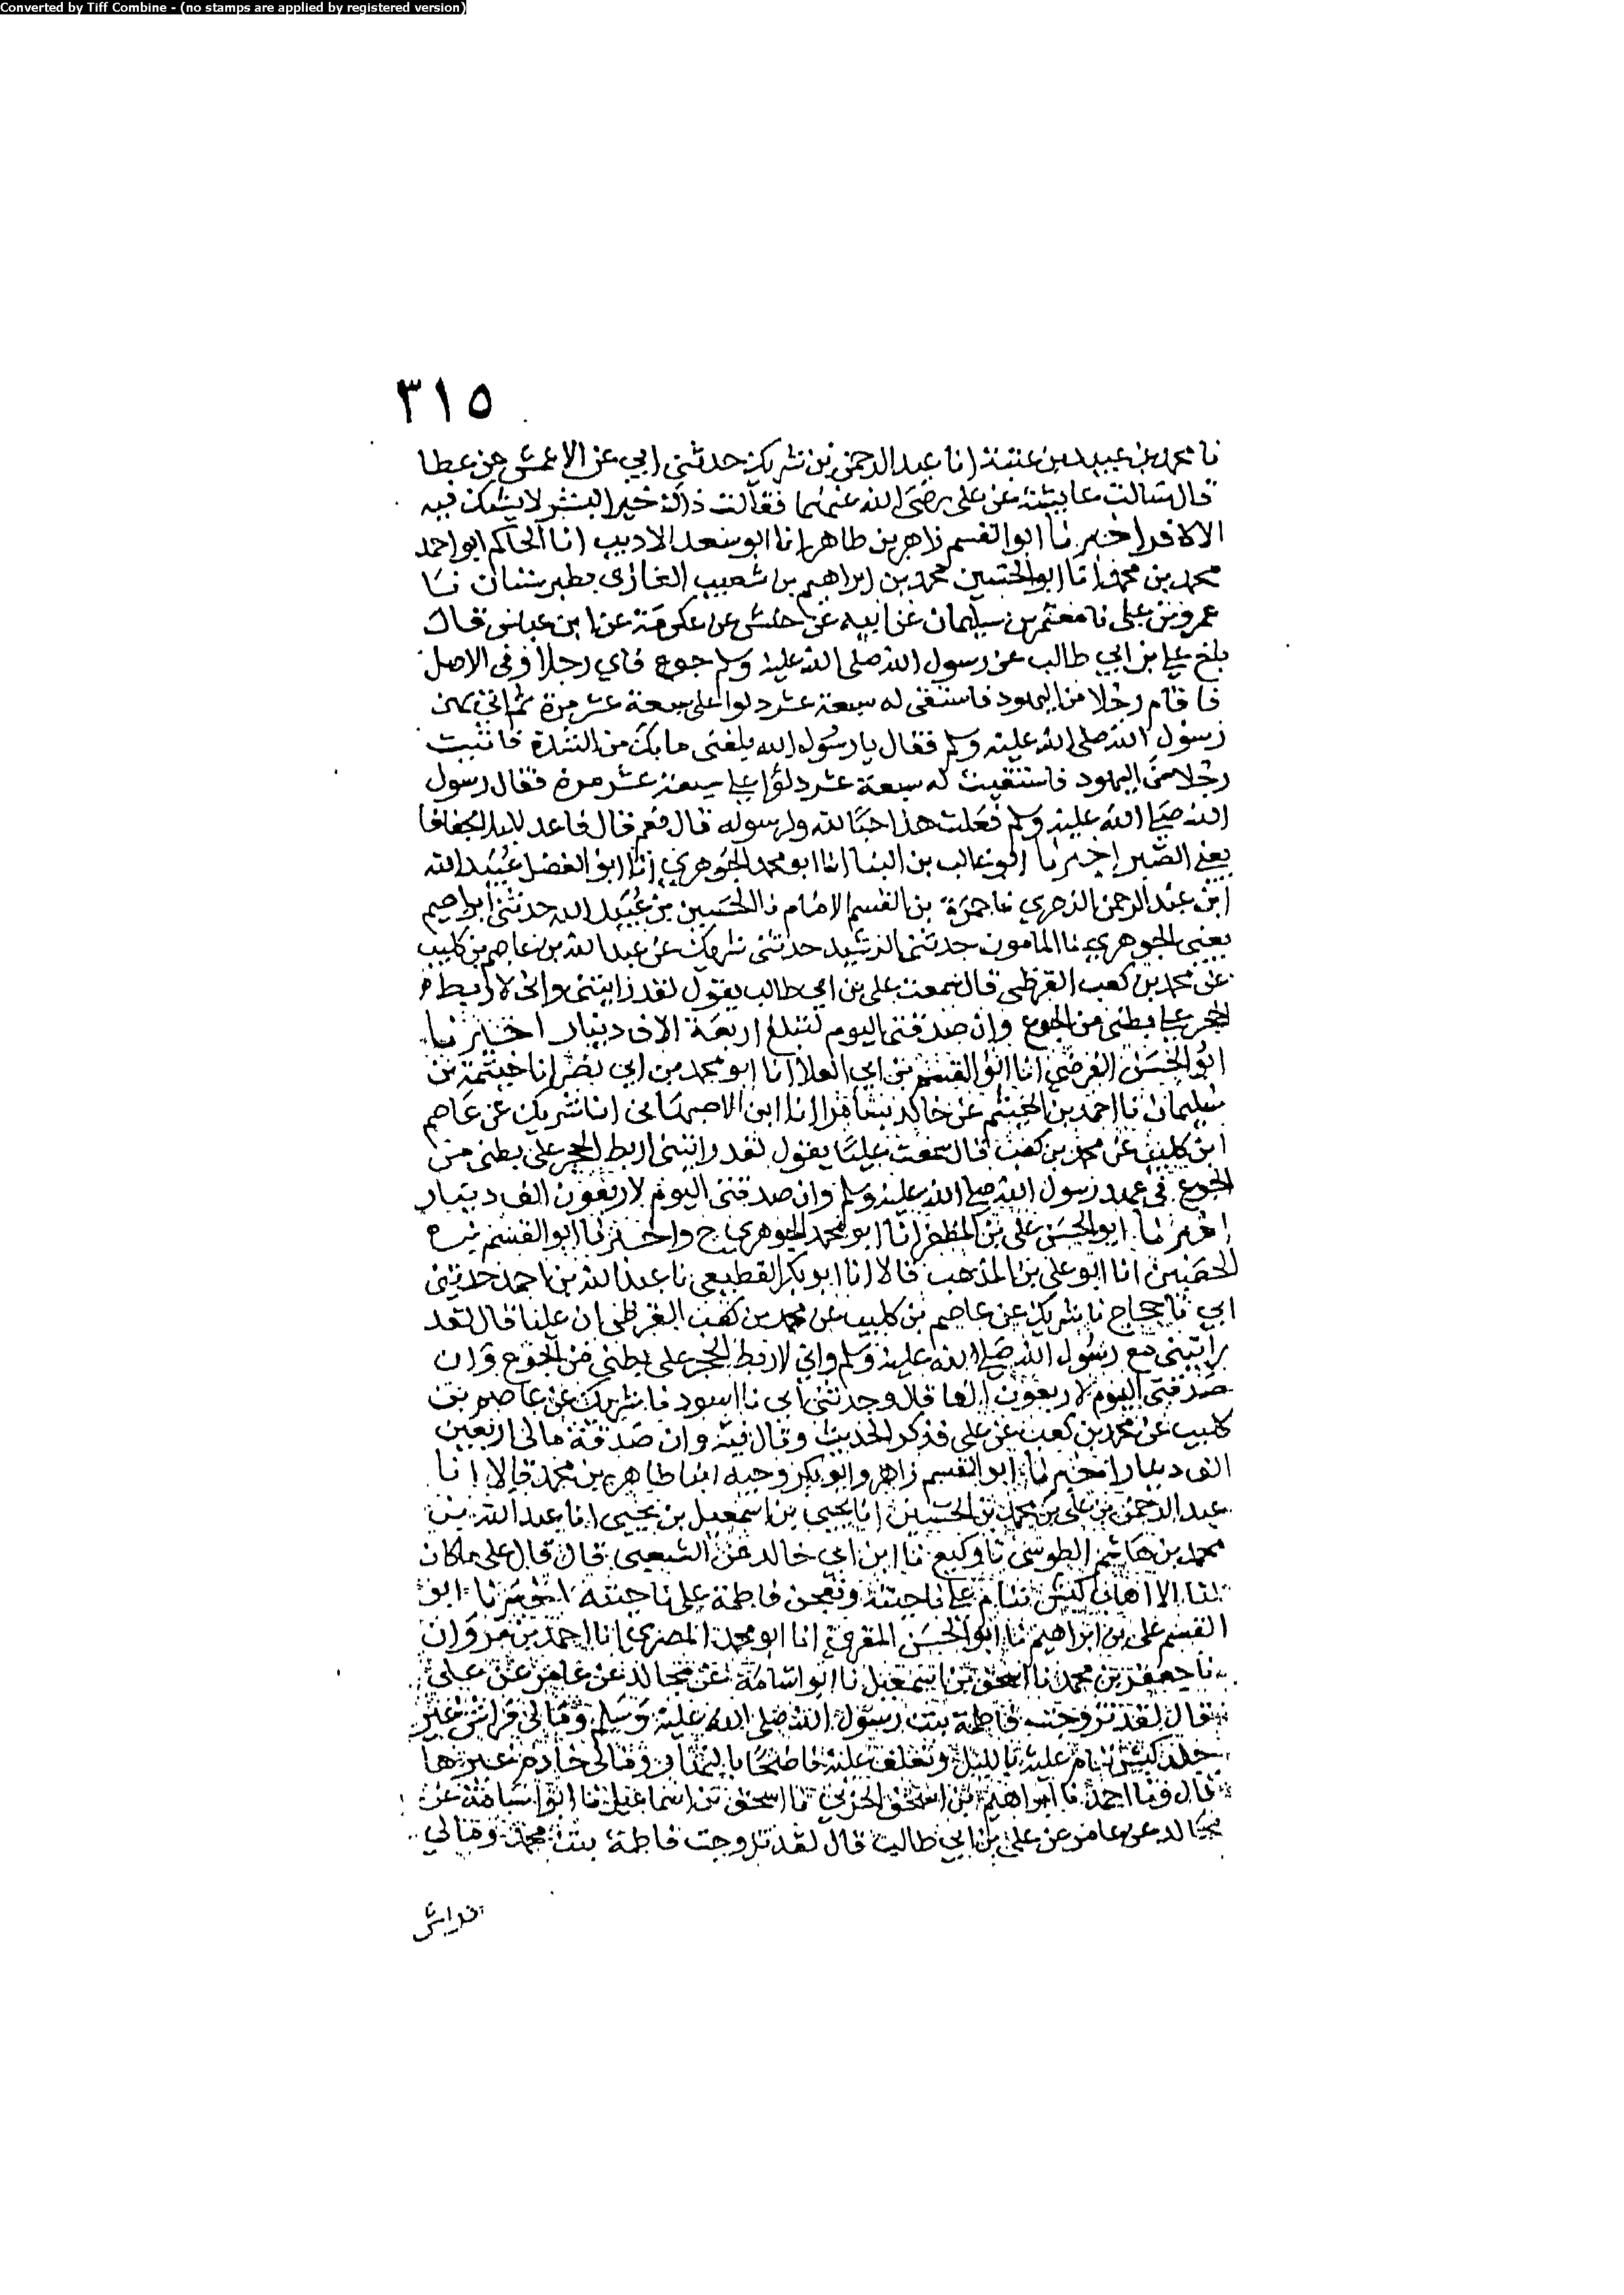 Converted by Tiff Combine - (no stamps are applied by registered version)
٣١٥
نا محمد بن عبيد بن عتبة انا عبد الرحمن بن شريك حدثني ابي عن الاعمش عن عطا
قال سالت عايشة عن علي رضي الله عنهما فقالت ذاك خير البشر لا يشك فيه
الا كافر اخبرنا ابو القسم زاهر بن طاهر انا ابو سعد الاديب انا الحاكم ابو احمد
محمد بن محمد انا ابو الحسين محمد بن ابراهيم بن شعيب الغازي بطبرستان نا
عمرو بن علي نا معتمر بن سليمان عن ابيه عن حنش عن عكرمة عن ابن عباس قال
بلغ علي بن ابي طالب عن رسول الله صلى الله عليه وسلم جوع فاي رجلا وفي الاصل
فاقام رجلا من اليهود فاستقى له سبعة عشر دلوا على سبعة عشر مرة ثم اتى بهن
رسول الله صلى الله عليه وسلم فقال يا رسول الله بلغني ما بك من الشدة فاتيت
رجلا من اليهود فاستقيت له سبعة عشر دلوا علي سبعة عشر مرة فقال رسول
الله صلى الله عليه وسلم فعلت هذا حبا لله ولرسوله قال نعم قال فاعد للبلا تجفافا
يعني الصبر اخبرنا ابو غالب بن البنا انا ابو محمد الجوهري انا ابو الفضل عبيد الله
ابن عبد الرحمن الزهري نا حمزة بن القسم الامام نا الحسين بن عبيد الله حدثني ابراهيم
يعني الجوهري نا المامون حدثني الرشيد حدثني شريك عن عبد الله بن عاصم بن كليب
عن محمد بن كعب القرظي قال سمعت علي بن ابي طالب يقول لقد رايتني واني لاربط
الحجر علي بطني من الجوع وان صدقتي اليوم لتبلغ اربعة الاف دينار اخبرنا
ابو الحسن الفرضي انا ابو القسم بن ابي العلا انا ابو محمد بن ابي نصر انا خيثمة بن
سليمان نا احمد بن الهيثم عن خالد بسامرا انا ابن الاصبهاني انا شريك عن عاصم
ابن كليب عن محمد بن كعب قال سمعت عليا يقول لقد رايتني اربط الحجر على بطني من
الجوع في عهد رسول الله صلي الله عليه وسلم وان صدقتي اليوم لاربعون الف دينار
اخبرنا ابو الحسن علي بن المظفر انا ابو محمد الجوهري ح واخبرنا ابو القسم بن
الحصين انا ابو علي بن المذهب قالا انا ابو بكر القطيعي نا عبد الله بن احمد حدثني
ابي نا حجاج نا شريك عن عاصم بن كليب عن محمد بن كعب القرظي ان عليا قال لقد
رايتني مع رسول الله صلي الله عليه وسلم واني لاربط الحجر على بطني من الجوع وان
صدقتي اليوم لاربعون الفا قال وحدثني ابي نا اسود نا شريك عن عاصم بن
كليب عن محمد بن كعب عن علي فذكر الحديث وقال فيه وان صدقة مالي اربعين
الف دينار اخبرنا ابو القسم زاهر وابو بكر وجيه ابنا طاهر بن محمد قالا انا
عبد الرحمن بن علي بن محمد بن الحسين انا يحيى بن اسمعيل بن يحيى انا عبد الله بن
محمد بن هاشم الطوسي نا وكيع نا ابن ابي خالد عن الشعبي قال قال علي ما كان
لنا الا اهاب كبش ننام علي ناحيته وتعجن فاطمة على ناحيته اخبرنا ابو
القسم علي بن ابراهيم نا ابو الحسن المقرئ انا ابو محمد المصري انا احمد بن مروان
نا جعفر بن محمد نا اسحق بن اسمعيل نا ابو اسامة عن مجالد عن عامر عن علي
قال لقد تزوجت فاطمة بنت رسول الله صلى الله عليه وسلم ومالي فراش غير
جلد كبش ننام عليه بالليل ونعلف عليه ناضحنا بالنهار ومالي خادم غيرها
قال ونا احمد نا ابراهيم بن اسحق الحربي نا اسحق بن اسماعيل نا ابو اسامة عن
مجالد عن عامر عن علي بن ابي طالب قال لقد تزوجت فاطمة بنت محمد ومالي
فراش